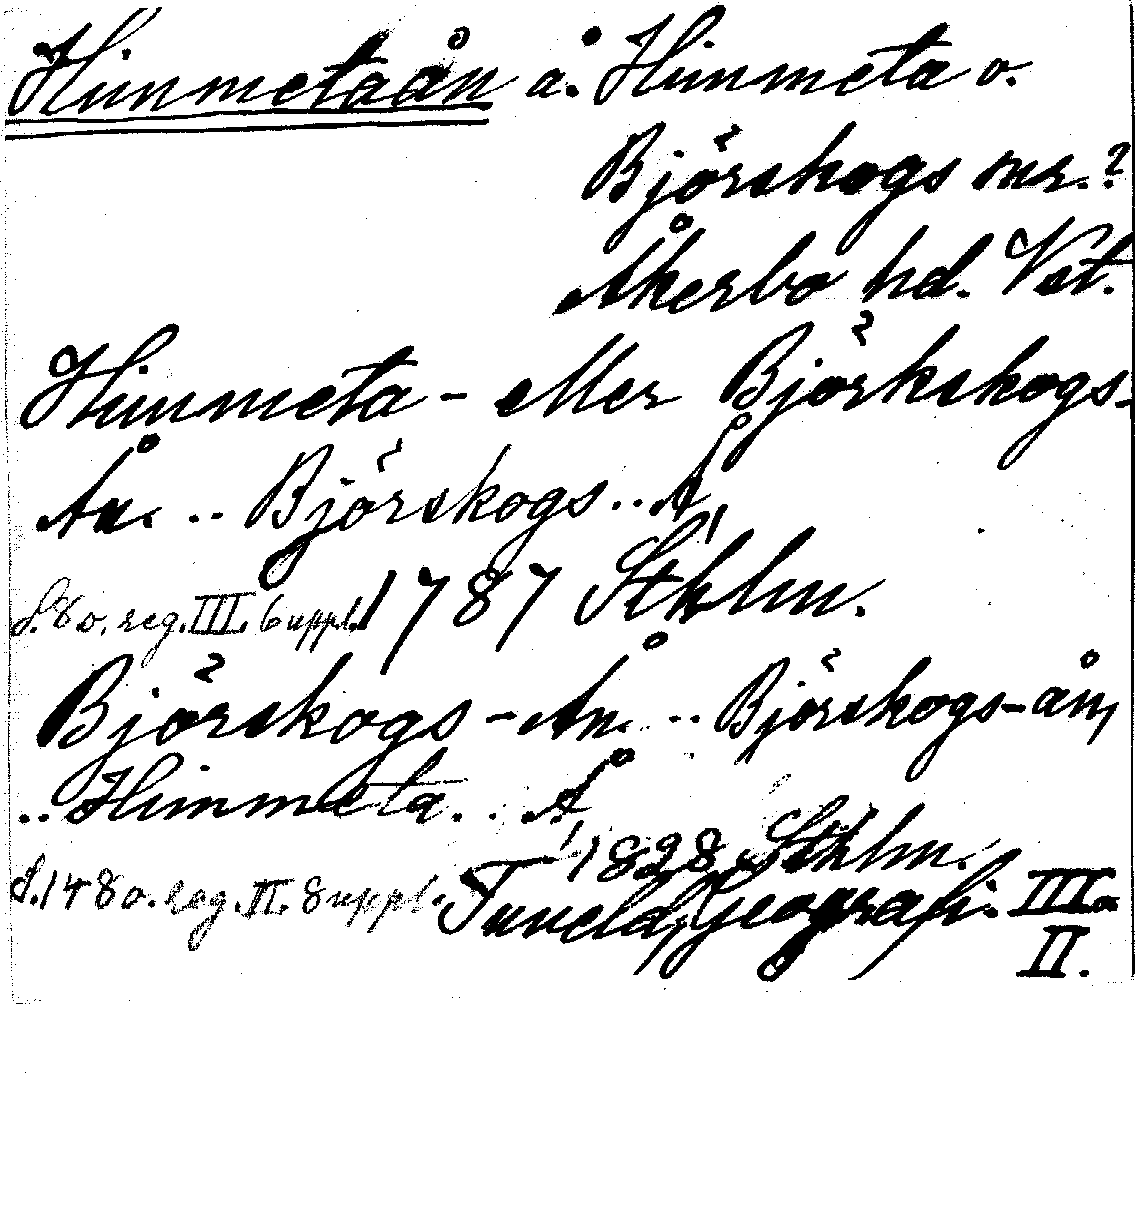 Himmetaån å. Himmeta o.
Björskogs snr.?
Åkerbo hd. Vst.
Himmeta - eller Björkskogs-
Ån. .. Björskogs .. Å,
S. 80. reg. III. 6 uppl. 1787 Sthlm.
Björskogs - Ån. .. Björskogs-ån,
.. Himmeta. .. Å,
1828 Sthlm.
S. 148 o. reg. II. 8 uppl. Tuneld, Geografi. III o.
II.